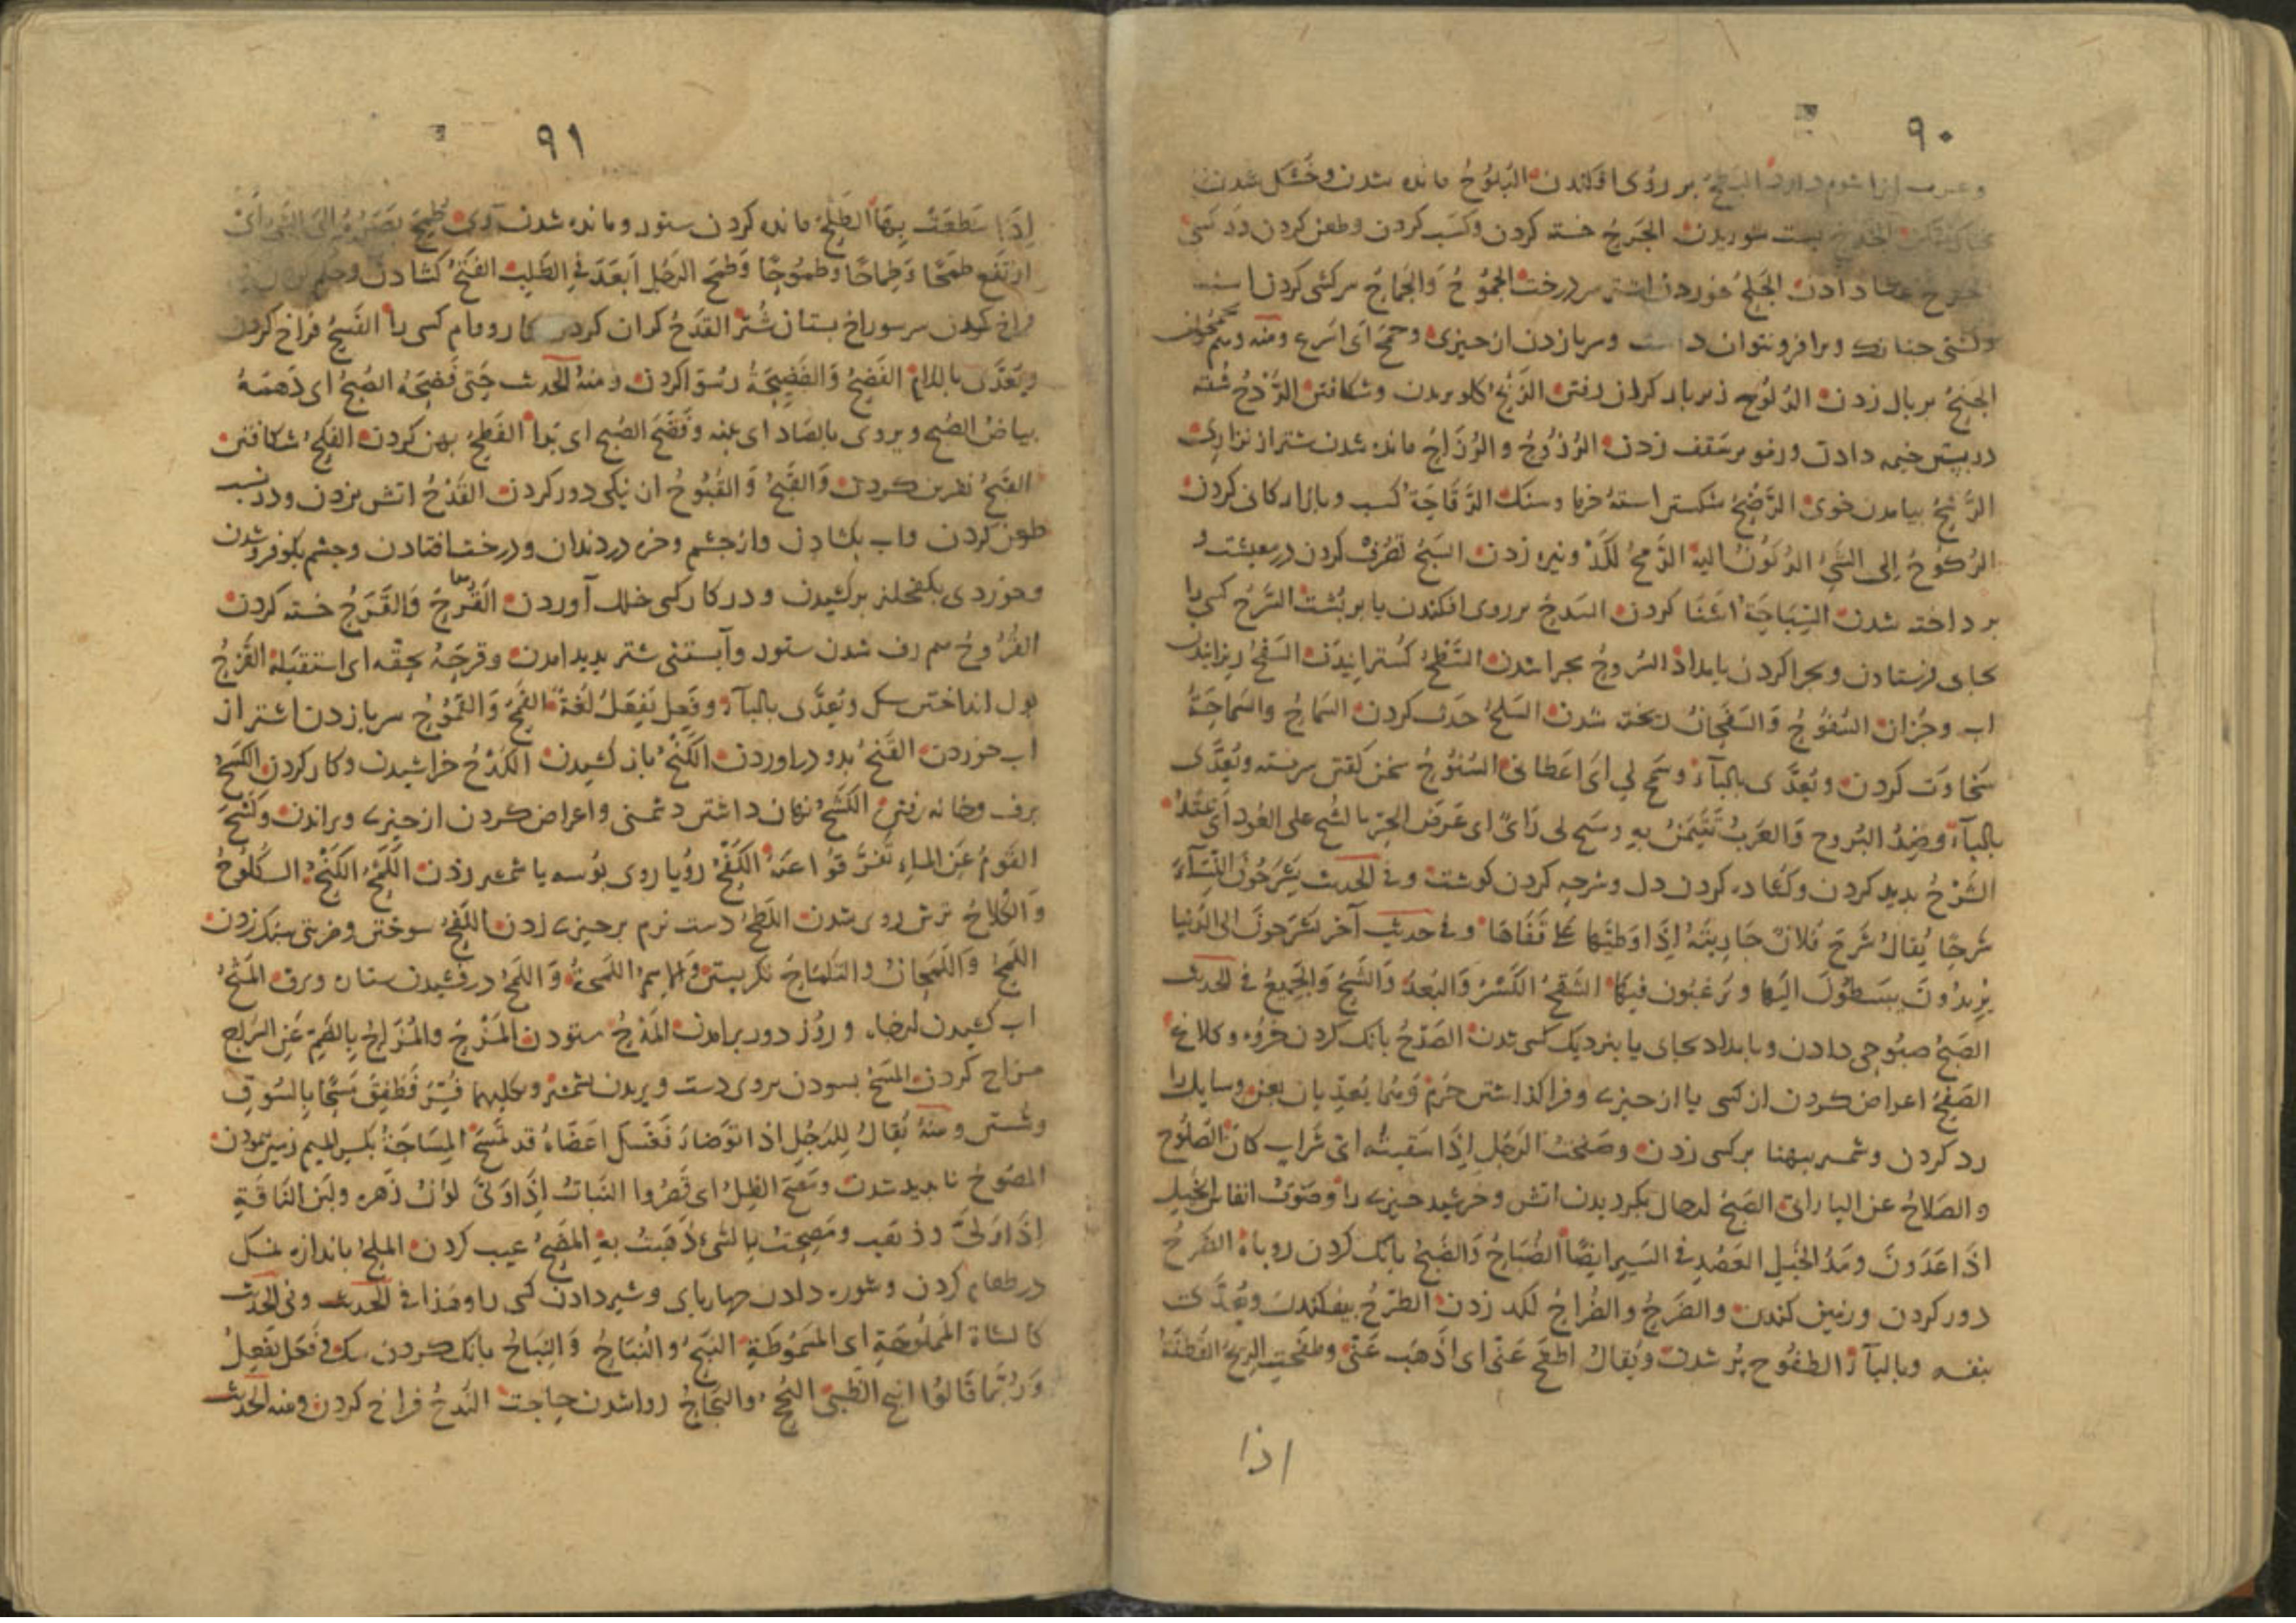 ٩٠
البطح بر روی افکندن البلوح مانده شدن و خشک شدن
بدست شوریدن الجرح خسته کردن و کسب کردن و طعن کردن در کسی
دادن الجلح خوردن اشتر سر درخت الجموح والجماح سرکشی کردن اسب
وکشتی چنانک ویرا فرو نتوان داشت وسر باز زدن از چیزی وجمح ای اسرع ومنه وهم یجمحون
الجنح بر بال زدن الدلوح زیر بار کران رفتن الذبح کلو بریدن وشکافتن الردح شقه
در پیش خیمه دادن و رفو بر سقف زدن الرزوح والرزاح مانده شدن شتر از نزاری
الرشح بیامدن خوی الرضح شکستن استه خرما وسنک الرقاحة کسب وبازارکانی کردن
الرکوح الی الشیء الرکون الیه الرمح لکد ونیزه زدن السبح تصرف کردن در معیشت و
پرداخته شدن السباحة اشنا کردن السدح بر روی افکندن یا بر پشت السرح کسی را
بجای فرستادن وبچرا کردن بامداد السروح بچرا شدن السطح کسترانیدن السفح ریزانیدن
اب وجزان السفوح والسفحان ریخته شدن السلح حدث کردن السماح والسماحة
سخاوت کردن ویعدی بالباء وسمح لی ای اعطانی السنوح سخن کفتن سربسته ویعدی
بالباء وضد البروح والعرب تتیمن به وسنح لی رای ای عرض الجز بالشیء علی العود ای عقد
الشرح بدید کردن وکشاده کردن دل وشرحه کردن کوشت وفی الحدیث یشرحون النساء
شرحا یقال شرح فلان جاریته اذا وطئها علی قفاها وفی حدیث آخر یشرحون الی الدنیا
یریدون یبسطون الیها ویرغبون فیها الشقح الکسر والبعد والشح والجمیع فی الحدیث
الصبح صبوحی دادن وبامداد بجای یا بنزدیک کسی شدن الصدح بانک کردن خروه وکلاغ
الصفح اعراض کردن از کسی یا از چیزی وفرا کذاشتن جرم وهما یعدیان بعن وسایل را
رد کردن وشمشیر بپهنا بر کسی زدن وصفحت الرجل اذا سقیته ای شراب کان الصلوح
والصلاح عن الباراتی الضبح لرحال بکردیدن اتش وخرشید چیزی را وصوت انفاس الخیل
اذا عدون ومد الخیل العضد فی السیر ایضا الضباح والضبح بانک کردن روباه الضرح
دور کردن و زمین کندن والضرح والضراح لکد زدن الطرح بیفکندن ویعدی
بنفسه وبالباء الطفوح پر شدن ویقال اطفح عنی ای اذهب عنی وطفحت الریح القطنة
اذا
٩١
اذا سطعت بها الطلح مانده کردن ستور ومانده شدن وی طمح بصره الی الشیء ای
ارتفع طمحا وطماحا وطموحا وطمح الرجل ابعد فی الطلب الفتح کشادن وحکم
فراخ کردن سر سوراخ پستان شتر الفدح کران کردن کار ووام کسی را الفسح فراخ کردن
ویعدی باللام الفضح والفضیحة رسوا کردن ومنه الحدیث حتی فضحه الصبح ای دهمته
بیاض الصبح ویروی بالصاد ای بینه وفضح الصبح ای بدا الفطح پهن کردن الفلح شکافتن
القبح نفرین کردن والقبح والقبوح ان نیکی دور کردن القدح اتش بزدن ودر نسب
طعن کردن واب بکشادن وازجشم وخره در دندان ودرخت افتادن وجشم بکو فرو شدن
وخوردی بکفحلیز برکشیدن ودر کار کسی خلل آوردن القرح والقرح خسته کردن
القروح سم رف شدن ستور وآبستنی شتر بدید امدن وقرحه بحقه ای استقبله القزح
بول انداختن سک ویعدی بالباء وفعل یفعل لغة القمح والقموح سر باز زدن اشتر از
اب خوردن القنح بدو دراوردن الکبح باز کشیدن الکدح خراشیدن وکار کردن الکسح
برف وخانه رفتن الکشح نهان داشتن دشمنی واعراض کردن از چیزی وبراندن وکشح
القوم عن الماء تفرقوا عنه الکفح رویاروی بوسه یا شمشیر زدن الکلح الکنح الکلوح
والکلاح ترش روی شدن اللطح دست نرم بر چیزی زدن اللفح سوختن وضربتی سبک زدن
اللمح واللمحان والتلماح نکریستن والاسم اللمحة واللمح درفشیدن ستاره وبرق المتح
اب کشیدن از چاه وروز دور برامدن المدح ستودن المزح والمزاح بالضم عن السراج
مزاح کردن المسح بسودن بروی دست وبریدن بشمشیر وبکلیهما فسر فطفق مسحا بالسوق
وشستن ومنه یقال للرجل اذا توضا فغسل اعضاءه قد تمسح المساحة بکسر المیم زمین پیمودن
المصوح نابدید شدن ومصح الظل ای قصروا النبات اذا ولی لون زهره ولبن الناقة
اذا ولی وذهب ومصحت بالشیء ذهبت به المضح عیب کردن الملح باندازه نمک
در طعام کردن وشوره دادن چهاربای وشیر دادن کسی را وهذا فی الحدیث وفی الحدیث
کالشاة المملوحة ای المسموطة النبح والنباح والنباح بانک کردن سک وفی فعل یفعل
وربما قالوا نبح الظبی النجح والنجاح روا شدن حاجت الندح فراخ کردن ومنه الحدیث